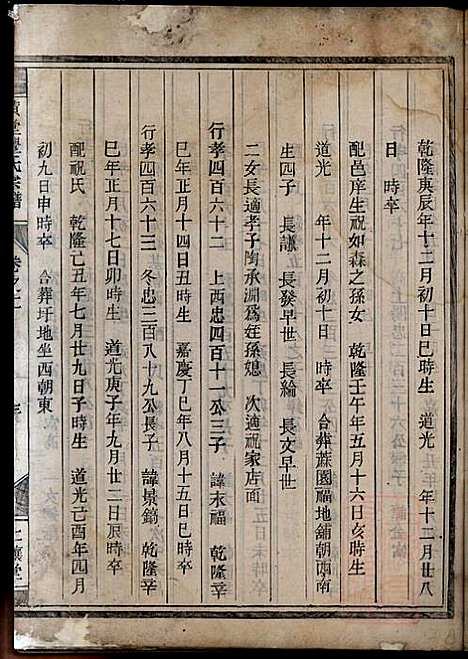 乾隆庚辰年十二月初十日巳時生　道光　年十二月廿八
日　時卒
配邑庠生祝如森之孫女　乾隆壬午年五月十六日亥時生
道光　年十二月初十日　時卒　合葬蔴園福地舖朝西南
生四子　長謙　長發早世　長綸　長文早世
二女長適孝子陶承淵爲姪孫媳　次適祝家店面
行孝四百六十二　上西忠四百十一公三子　諱末福　乾隆辛
巳年正月十四日丑時生　嘉慶丁巳年八月十五日巳時卒
行孝四百六十三　冬忠三百八十九公長子　諱景鎬　乾隆辛
巳年正月十七日卯時生　道光庚子年九月廿二日辰時卒
配祝氏　乾隆己丑年七月廿九日子時生　道光己酉年四月
初九日申時卒　合葬圩地坐西朝東
堂　氏宗譜
卷之
仁讓堂